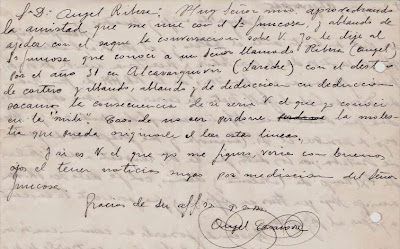 Sr D. Angel Ribera: Muy Señor mio, aprovechando
la amistad que me une con el Sr Juncosa, y ablando de
ajedrez con el saque la conversación sobre V. Yo le dije al
Sr Juncosa que conocí a un Señor llamado Ribera (Angel)
por el año 31 en Alcazarquivir (Larache) con el destino
de cartero y ablando, ablando y de deducción en deducción
sacamos la consecuencia de si seria V. el que yo conocí
en la "mili". Caso de no ser perdone la moles-
tia que pueda originarle el leer estas lineas.
Si es V. el que yo me figuro, veria con buenos
ojos el tener noticias suyas por mediacion del Señor
Juncosa.
Gracias de su aff.
Angel